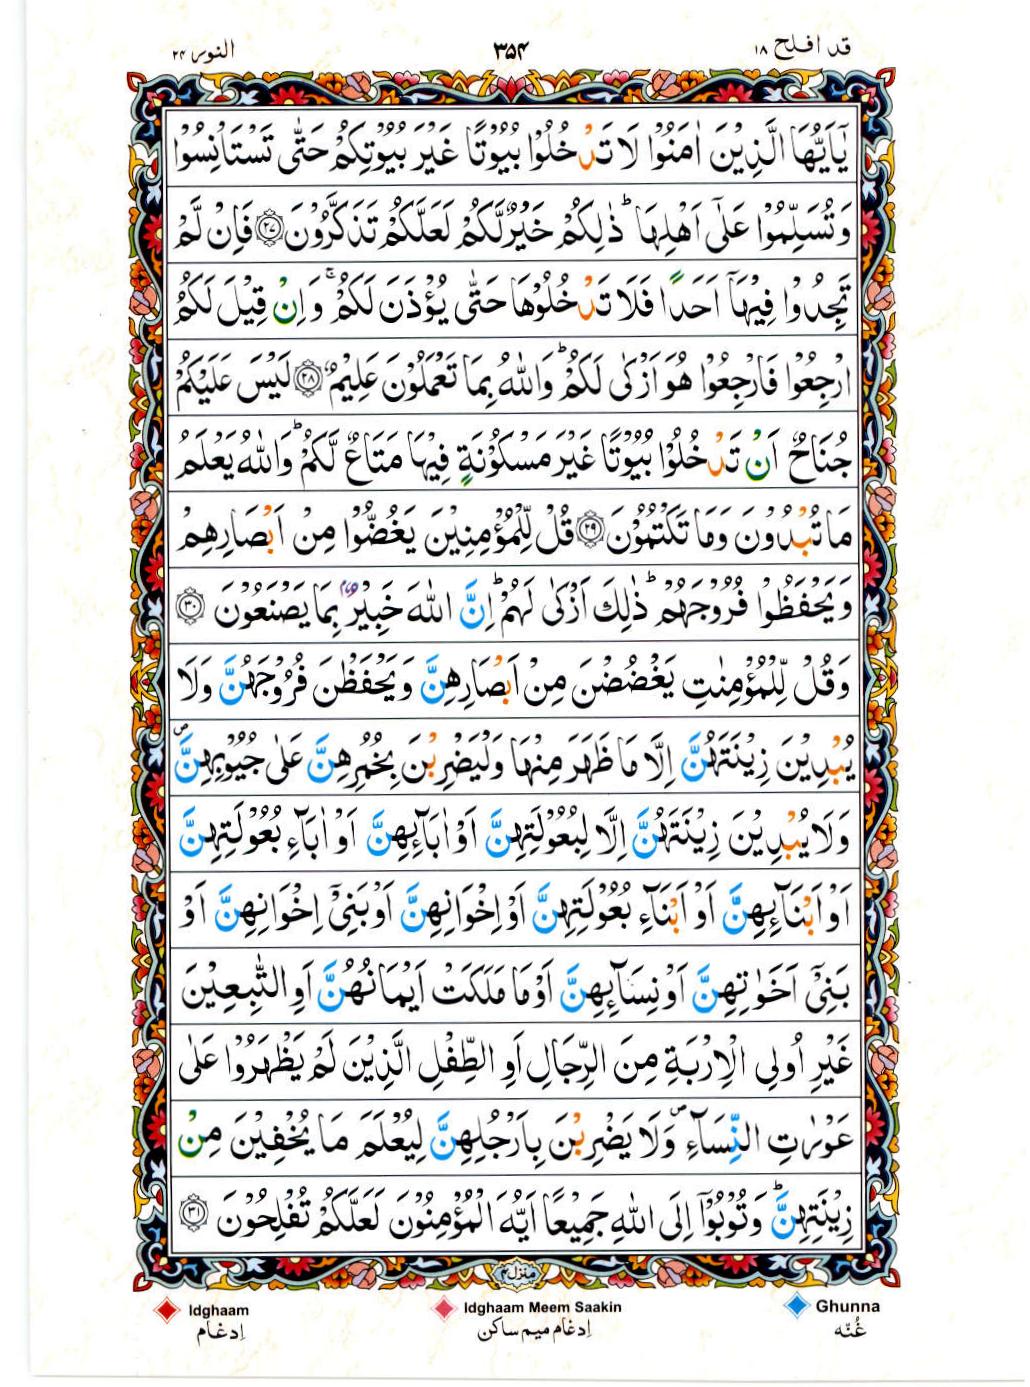 قد افلح ۱۸
۳۵۴
النور ۲۴
يٰۤاَيُّهَا الَّذِيْنَ اٰمَنُوْا لَا تَدْخُلُوْا بُيُوْتًا غَيْرَ بُيُوْتِكُمْ حَتّٰى تَسْتَاْنِسُوْا
وَتُسَلِّمُوْا عَلٰٓى اَهْلِهَا ؕ ذٰلِكُمْ خَيْرٌ لَّكُمْ لَعَلَّكُمْ تَذَكَّرُوْنَ ۝۲۷ فَاِنْ لَّمْ
تَجِدُوْا فِيْهَاۤ اَحَدًا فَلَا تَدْخُلُوْهَا حَتّٰى يُؤْذَنَ لَكُمْ ۚ وَاِنْ قِيْلَ لَكُمُ
ارْجِعُوْا فَارْجِعُوْا هُوَ اَزْكٰى لَكُمْ ؕ وَاللّٰهُ بِمَا تَعْمَلُوْنَ عَلِيْمٌ ۝۲۸ لَيْسَ عَلَيْكُمْ
جُنَاحٌ اَنْ تَدْخُلُوْا بُيُوْتًا غَيْرَ مَسْكُوْنَةٍ فِيْهَا مَتَاعٌ لَّكُمْ ؕ وَاللّٰهُ يَعْلَمُ
مَا تُبْدُوْنَ وَمَا تَكْتُمُوْنَ ۝۲۹ قُلْ لِّلْمُؤْمِنِيْنَ يَغُضُّوْا مِنْ اَبْصَارِهِمْ
وَيَحْفَظُوْا فُرُوْجَهُمْ ؕ ذٰلِكَ اَزْكٰى لَهُمْ ؕ اِنَّ اللّٰهَ خَبِيْرٌۢ بِمَا يَصْنَعُوْنَ ۝۳۰
وَقُلْ لِّلْمُؤْمِنٰتِ يَغْضُضْنَ مِنْ اَبْصَارِهِنَّ وَيَحْفَظْنَ فُرُوْجَهُنَّ وَلَا
يُبْدِيْنَ زِيْنَتَهُنَّ اِلَّا مَا ظَهَرَ مِنْهَا وَلْيَضْرِبْنَ بِخُمُرِهِنَّ عَلٰى جُيُوْبِهِنَّ ۪
وَلَا يُبْدِيْنَ زِيْنَتَهُنَّ اِلَّا لِبُعُوْلَتِهِنَّ اَوْ اٰبَآئِهِنَّ اَوْ اٰبَآءِ بُعُوْلَتِهِنَّ
اَوْ اَبْنَآئِهِنَّ اَوْ اَبْنَآءِ بُعُوْلَتِهِنَّ اَوْ اِخْوَانِهِنَّ اَوْ بَنِىْۤ اِخْوَانِهِنَّ اَوْ
بَنِىْۤ اَخَوٰتِهِنَّ اَوْ نِسَآئِهِنَّ اَوْ مَا مَلَكَتْ اَيْمَانُهُنَّ اَوِ التّٰبِعِيْنَ
غَيْرِ اُولِى الْاِرْبَةِ مِنَ الرِّجَالِ اَوِ الطِّفْلِ الَّذِيْنَ لَمْ يَظْهَرُوْا عَلٰى
عَوْرٰتِ النِّسَآءِ ۪ وَلَا يَضْرِبْنَ بِاَرْجُلِهِنَّ لِيُعْلَمَ مَا يُخْفِيْنَ مِنْ
زِيْنَتِهِنَّ ؕ وَتُوْبُوْۤا اِلَى اللّٰهِ جَمِيْعًا اَيُّهَ الْمُؤْمِنُوْنَ لَعَلَّكُمْ تُفْلِحُوْنَ ۝۳۱
منزل ۴
Idghaam
Idghaam Meem Saakin
Ghunna
اِدغام
اِدغام ميم ساكن
غُنّه